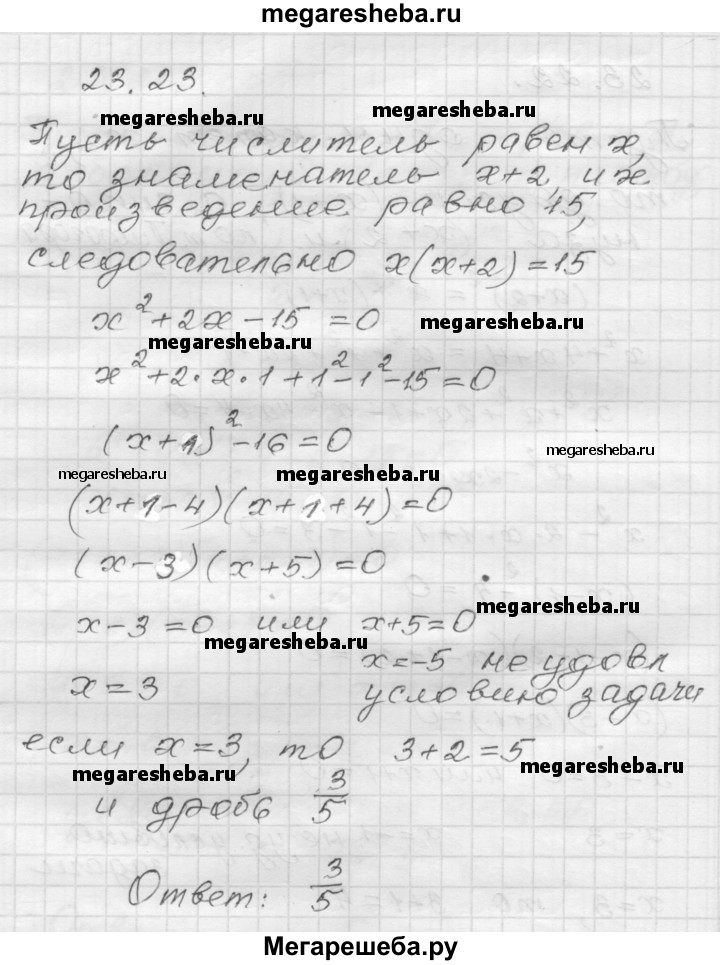 megaresheba.ru
23.23.
megaresheba.ru
megaresheba.ru
Пусть числитель равен x,
то знаменатель x+2, и их
произведение равно 15,
следовательно x(x+2)=15
x²+2x-15=0
megaresheba.ru
megaresheba.ru
x²+2·x·1+1²-1²-15=0
(x+1)²-16=0
megaresheba.ru
megaresheba.ru
megaresheba.ru
(x+1-4)(x+1+4)=0
(x-3)(x+5)=0
megaresheba.ru
x-3=0 или x+5=0
megaresheba.ru
x=3 x=-5 не удовл
условию задачи
если x=3, то 3+2=5
megaresheba.ru
megaresheba.ru
и дробь 3/5
Ответ: 3/5
Мегарешеба.ру